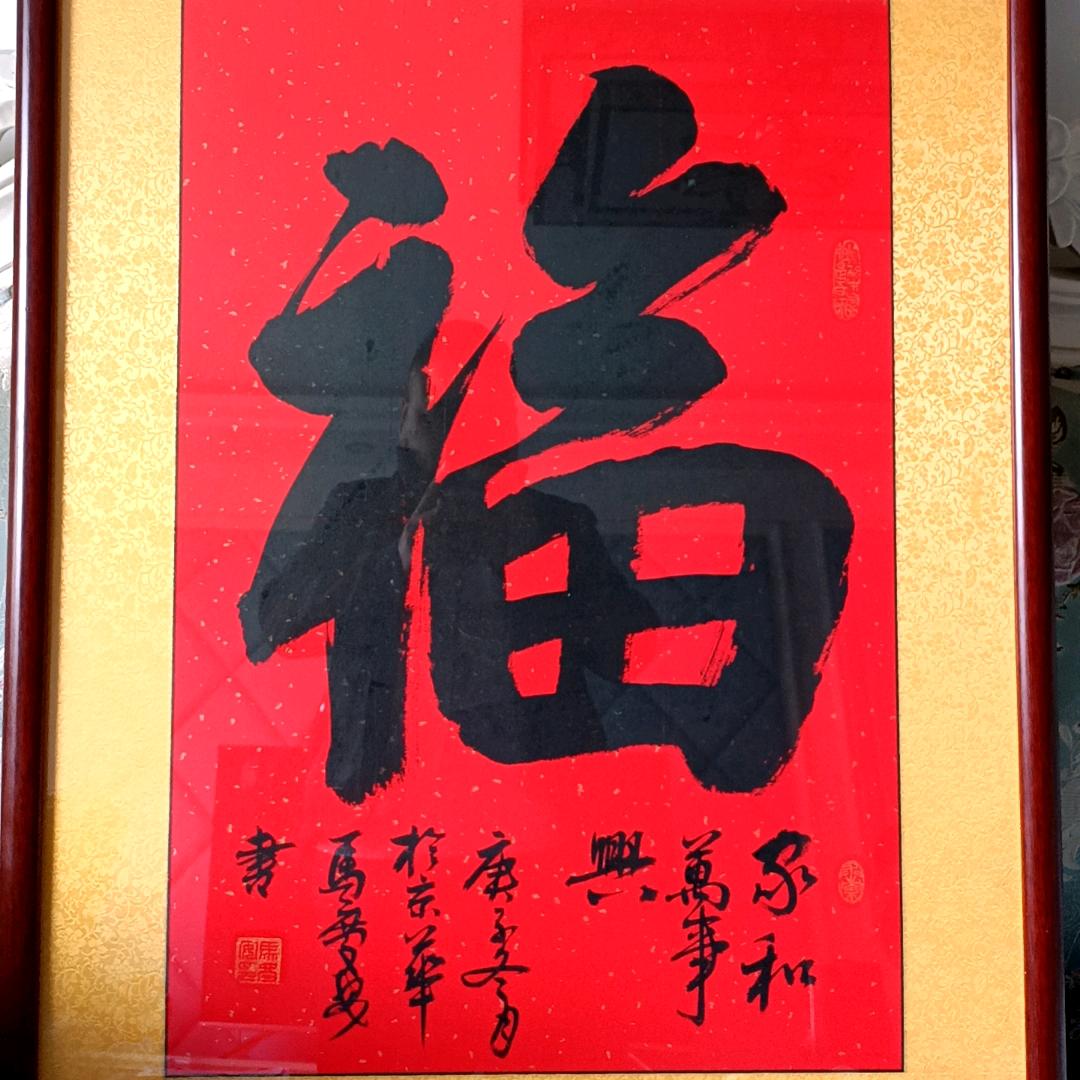 福
家和
萬事
興
庚子冬月
於京華
馬
書